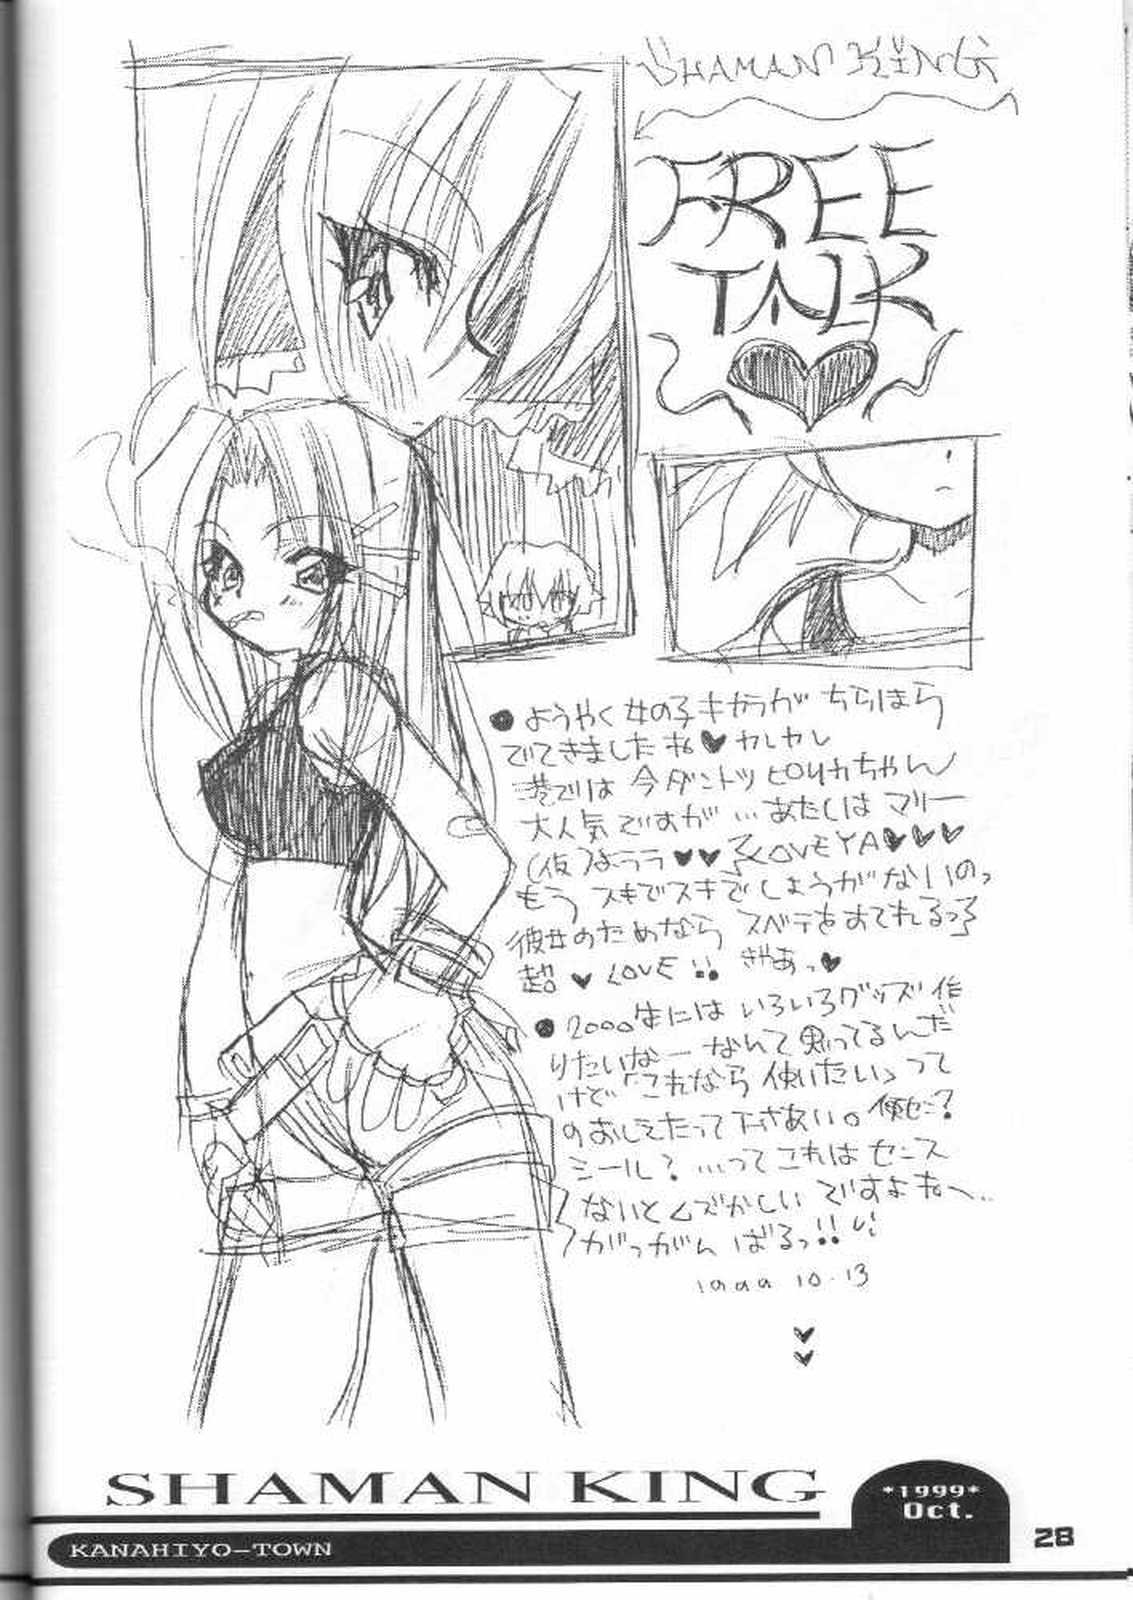 SHAMAN KING
FREE
TALK
●ようやく女の子キャラが ちらほら
でてきましたね♥ ヤレヤレ
巷では 今ダントツ ピリカちゃん
大人気ですが…あたしは マリー
(仮)よララ♥♥ LOVEYA♥♥♥
もう スキでスキで しょうがないのっ
彼女のためなら スベテをすてれるっ
超♥LOVE!! ぎゃあっ♥
●2000年には いろいろグッズ 作
りたいなー なんて思ってるんだ
けど「これなら 使いたい」って
のおしえたって下さあい。便せん?
シール? …ってこれは センス
ないとムズかしい ですよねー..
がっがん ばるっ!!
1999 10.13
SHAMAN KING
*1999*
Oct.
KANAHIYO-TOWN
28